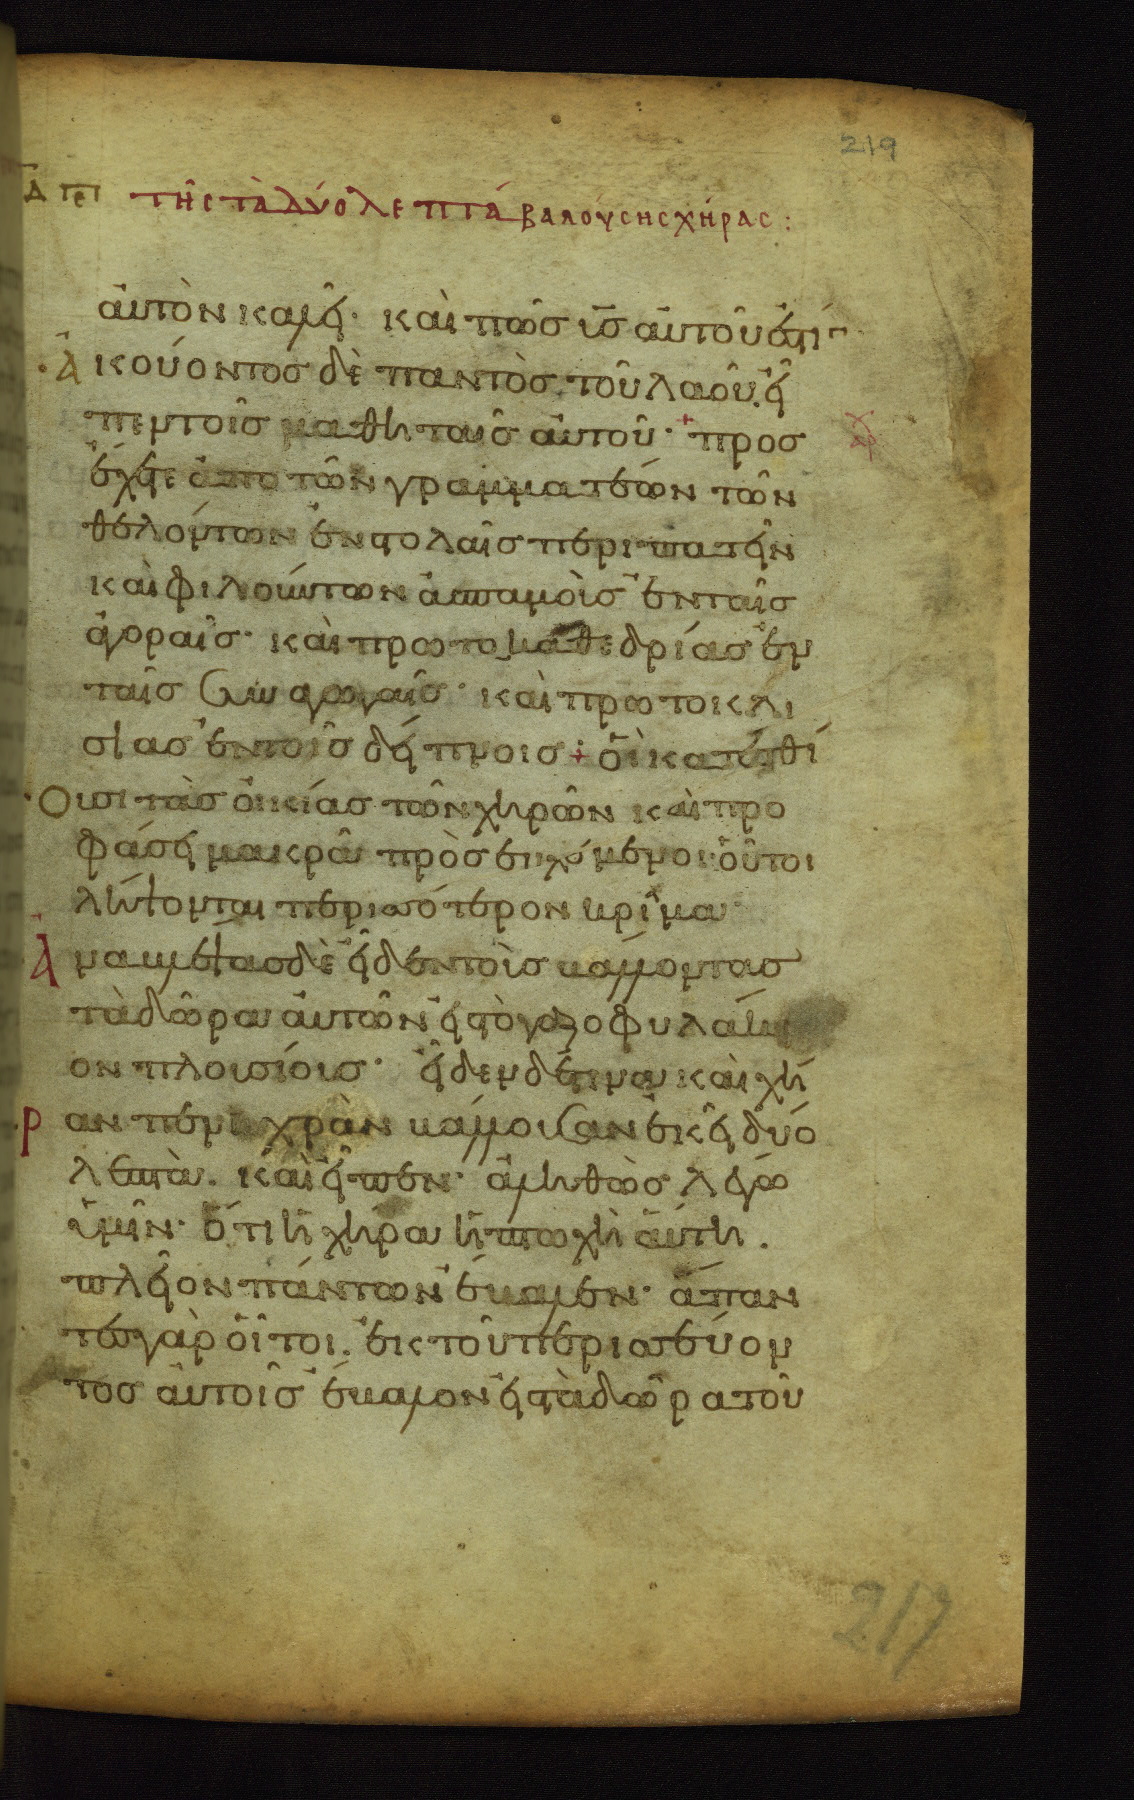 219
τῆς τὰ δύο λεπτὰ βαλούσης χήρας :
αὐτὸν καλεῖ· καὶ πῶς υἱς αὐτοῦ ἐστίν·
Ἀκούοντος δὲ παντὸς τοῦ λαοῦ. εἶ
πεν τοῖς μαθηταῖς αὐτοῦ· + προσ
έχετε ἀπο τῶν γραμματέων τῶν
θελόντων ἐν στολαῖς περιπατεῖν
καὶ φιλούντων ἀσπασμοὺς ἐν ταῖς
ἀγοραῖς· καὶ πρωτοκαθεδρίας ἐν
ταῖς συναγωγαῖς· καὶ πρωτοκλι
σίας ἐν τοῖς δείπνοις + οἳ κατεσθί
Ουσι τὰς οἰκίας τῶν χηρῶν καὶ προ
φάσει μακρᾶ προσευχόμενοι· οὗτοι
λήψονται περισσότερον κρίμα·
Ἀναβλέψας δὲ εἶδεν τοὺς βάλλοντας
τὰ δῶρα αὐτῶν εἰς τὸ γαζοφυλάκι
ον πλουσίους· εἶδεν δέ τινα καὶ χή
Ραν πενιχρὰν βάλλουσαν ἐκεῖ δύο
λεπτὰ. καὶ εἶπεν· ἀληθῶς λέγω
ὑμῖν· ὅτι ἡ χήρα ἡ πτωχὴ αὕτη.
πλεῖον πάντων ἔβαλεν· ἅπαν
τες γὰρ οὗτοι. ἐκ τοῦ περισσεύον
τος αὐτοῖς ἔβαλον εἰς τὰ δῶρα τοῦ
217